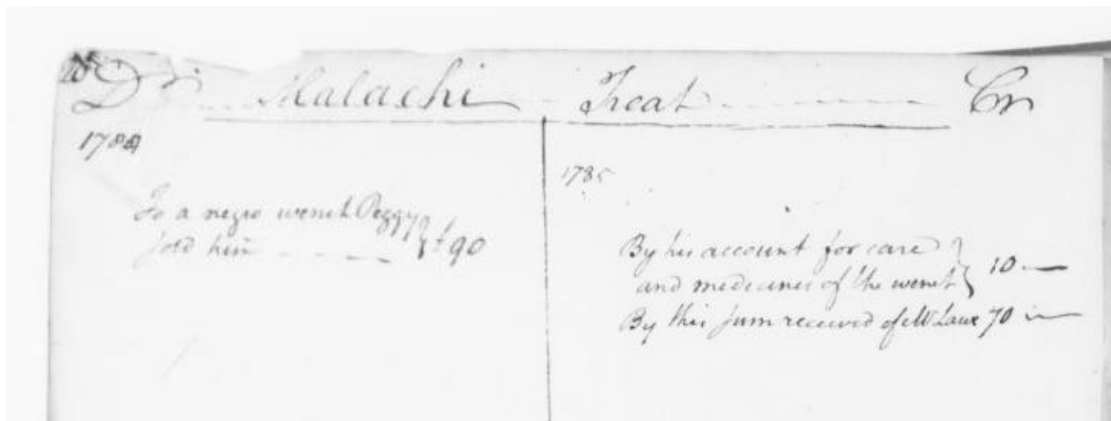 Dr Malachi Treat Cr
To a negro wench Peggy
sold him £90
1785
By his account for care
and medicines of the wench 10
By this sum received of Mr Laux 70